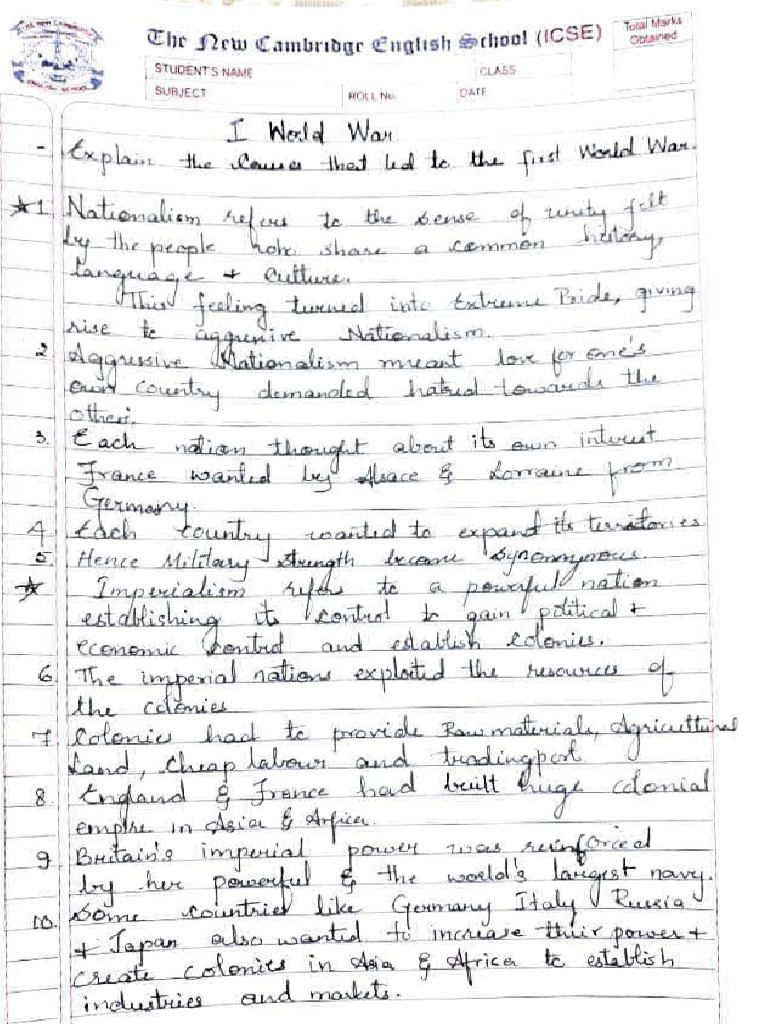 The New Cambridge English School (ICSE)
Total Marks
Obtained
STUDENT'S NAME
CLASS
SUBJECT
ROLL No.
DATE
I World War
- Explain the causes that led to the first World War.
★ 1. Nationalism refers to the sense of unity felt
by the people who share a common history,
language + culture.
This feeling turned into Extreme Pride, giving
rise to aggressive Nationalism.
2. Aggressive Nationalism meant love for one's
own country demanded hatred towards the
other.
3. Each nation thought about its own interest
France wanted by Alsace & Lorraine from
Germany.
4. Each country wanted to expand its territories
5. Hence Military strength became synonymous.
★ Imperialism refers to a powerful nation
establishing its control to gain political +
economic control and establish colonies.
6. The imperial nations exploited the resources of
the colonies
7. Colonies had to provide Raw materials, Agricultural
Land, cheap labour and trading port
8. England & France had built huge colonial
empire in Asia & Africa.
9. Britain's imperial power was reinforced
by her powerful & the world's largest navy.
10. Some countries like Germany Italy Russia
+ Japan also wanted to increase their power +
create colonies in Asia & Africa to establish
industries and markets.